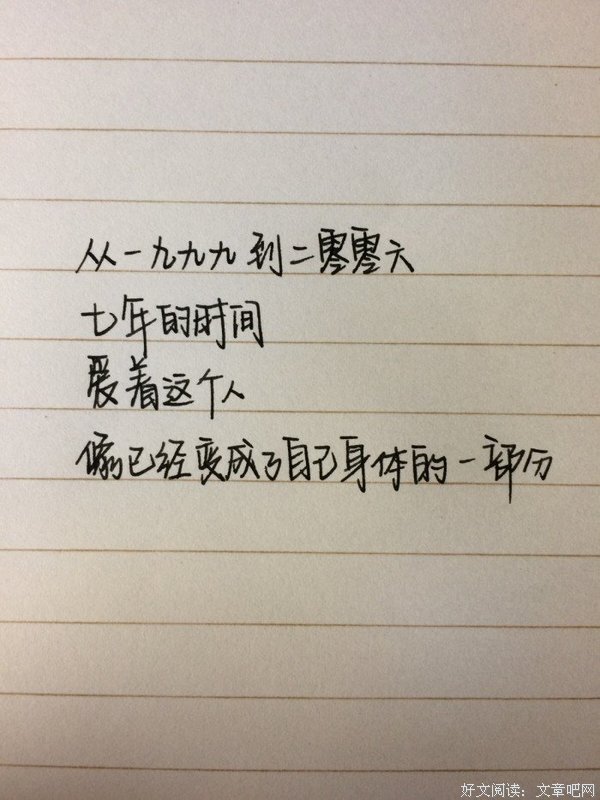 从一九九九到二零零六
七年的时间
爱着这个人
像已经变成了自己身体的一部分
好文阅读：文章吧网